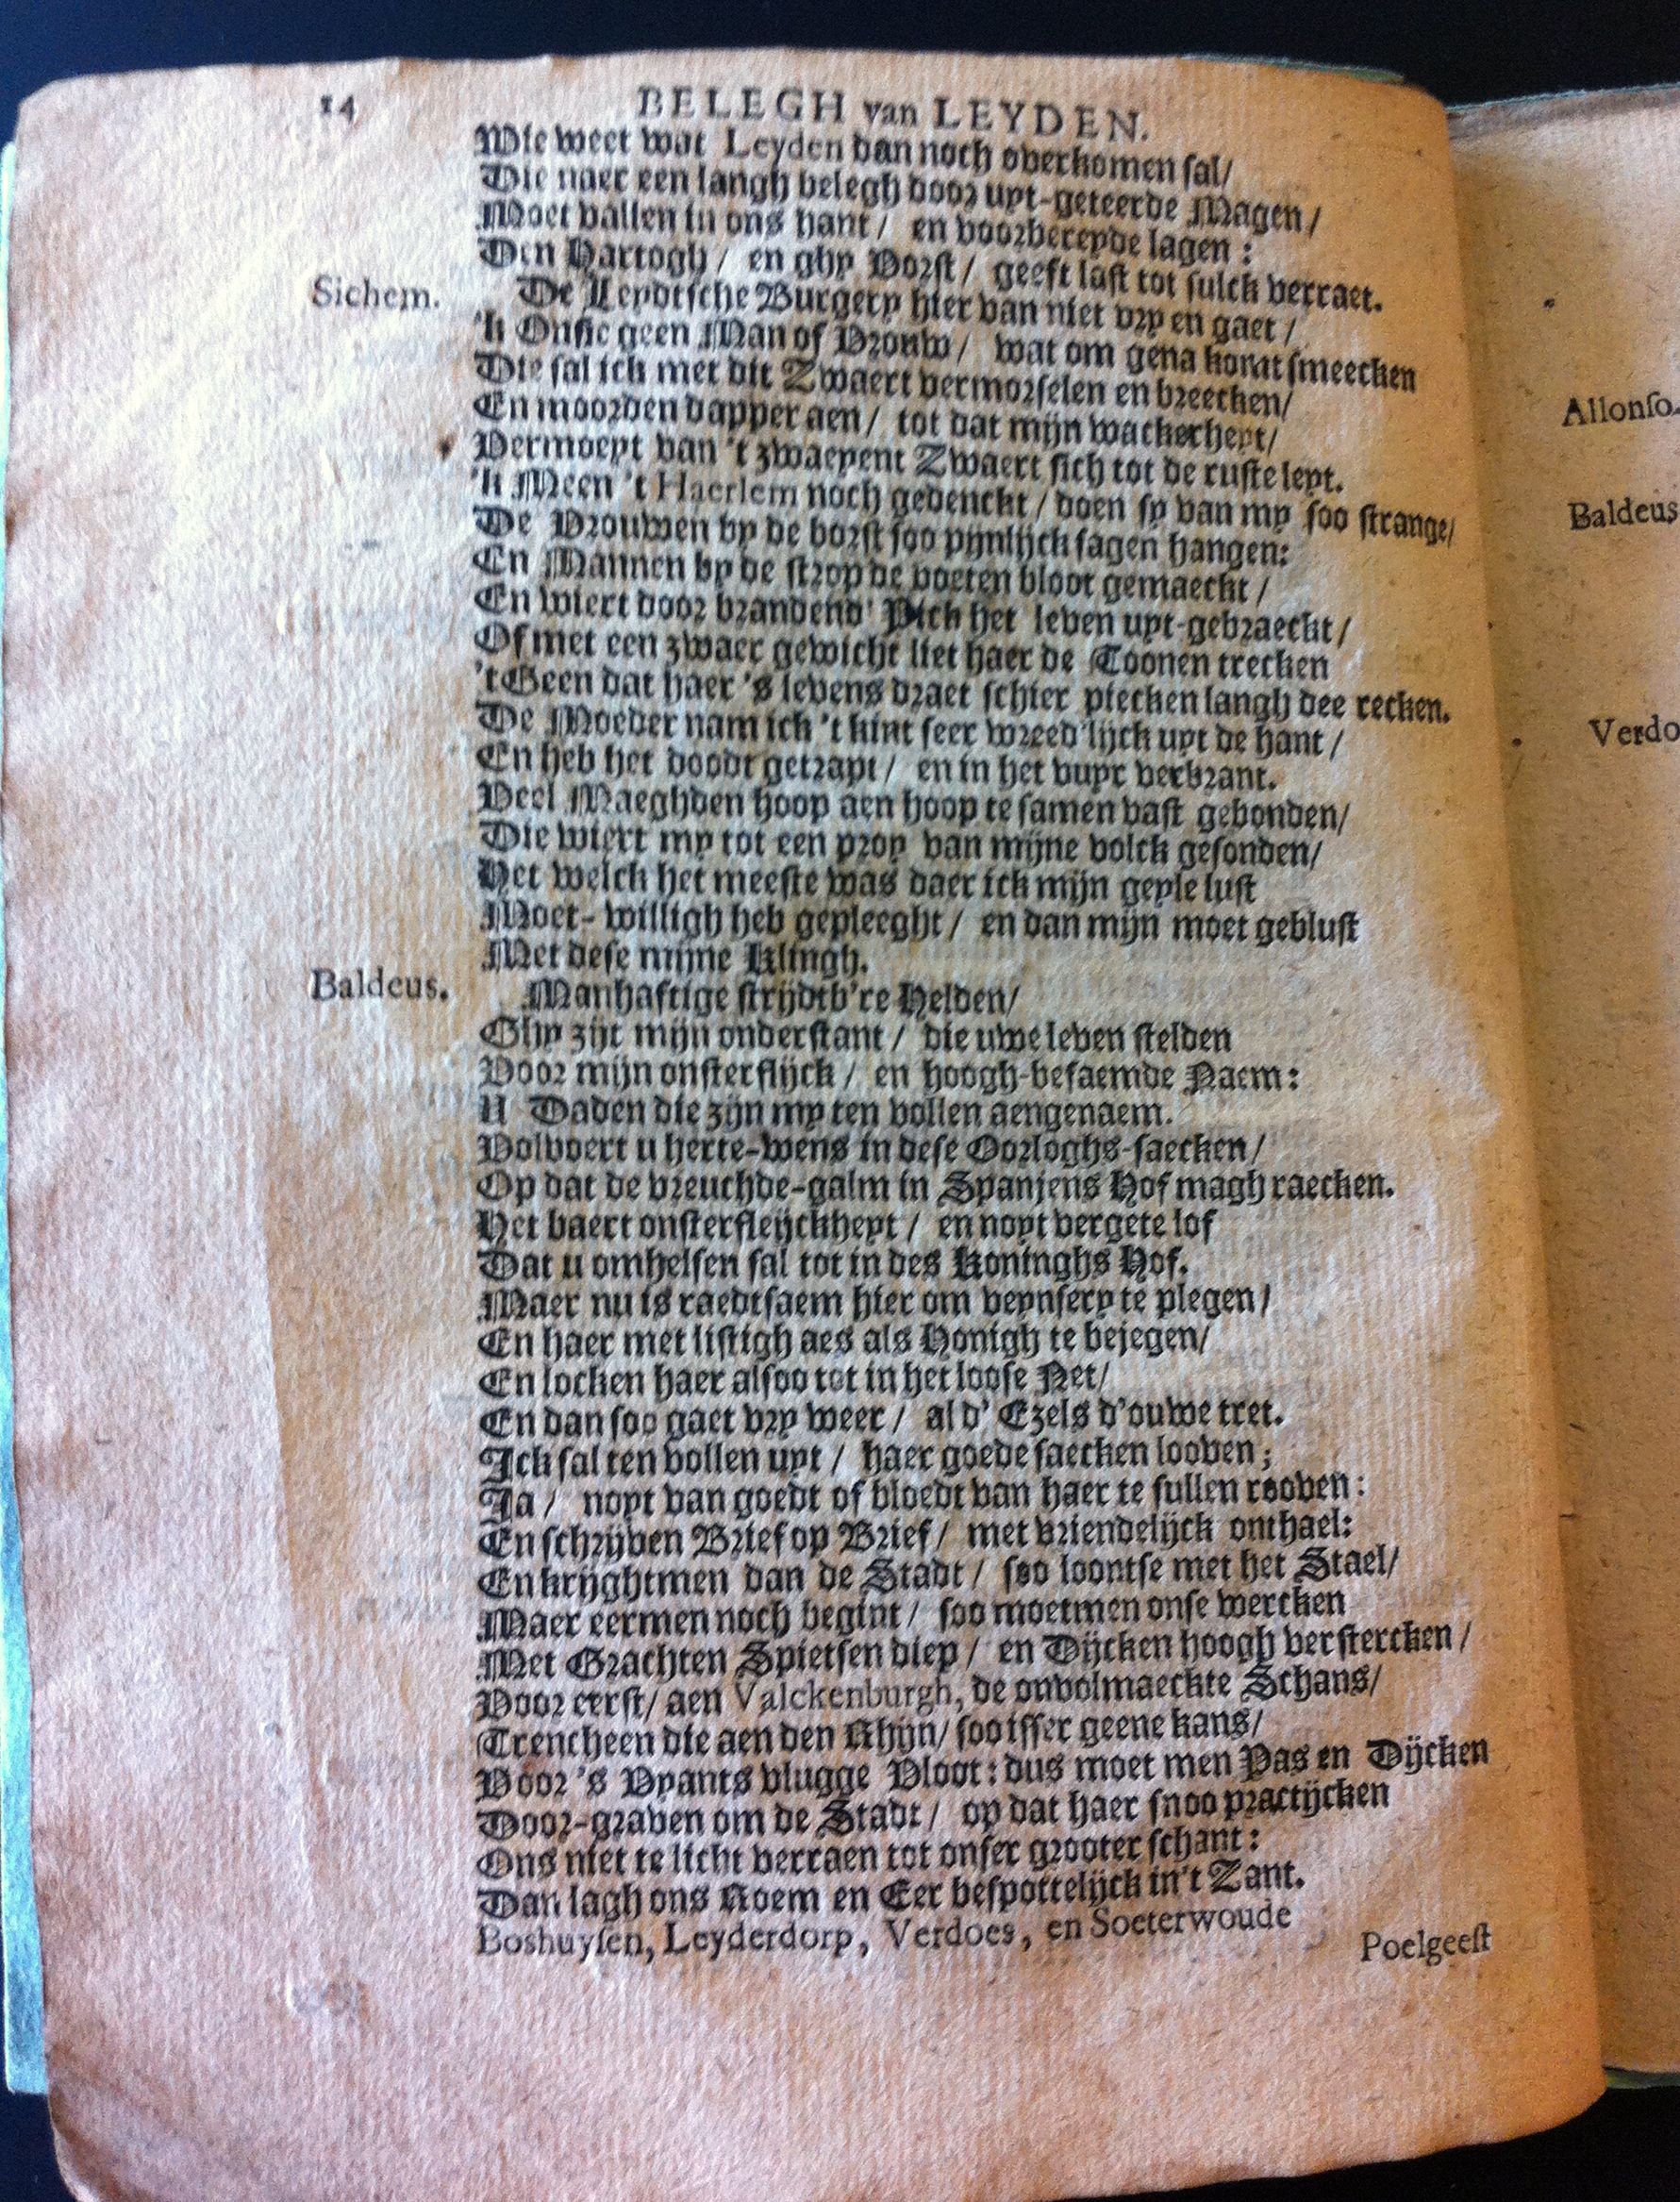 14 BELEGH van LEYDEN.
Wie weet wat Leyden dan noch overkomen sal/
Die naer een langh belegh door uyt-geteerde Magen/
Moet vallen in ons hant / en voorbereyde lagen :
Den Hartogh / en ghy Vorst / geeft last tot sulck verraet.
Sichem. De Leydtsche Burgery hier van niet vry en gaet /
'k Onsie geen Man of Vrouw / wat om gena komt smeecken
Die sal ick met dit Zwaert vermorselen en breecken/
En moorden dapper aen / tot dat mijn wackerheyt/
Vermoeyt van 't zwaeyent Zwaert sich tot de ruste leyt.
'k Meen 't Haerlem noch gedenckt / doen sy van my soo strange/
De Vrouwen by de borst soo pijnlijck sagen hangen:
En Mannen by de strop de voeten bloot gemaeckt /
En wiert door brandend' Pick het leven uyt-gebraeckt /
Of met een zwaer gewicht liet haer de Toonen trecken
't Geen dat haer 's levens draet schier piecken langh dee recken.
De Moeder nam ick 't kint seer wreed'lijck uyt de hant /
En heb het doodt getrapt / en in het vuyr verbrant.
Veel Maeghden hoop aen hoop te samen vast gebonden/
Die wiert my tot een proy van mijne volck gesonden/
Het welck het meeste was daer ick mijn geyle lust
Moet-willigh heb gepleeght / en dan mijn moet geblust
Met dese mijne Klingh.
Baldeus. Manhaftige strijdtb're Helden/
Ghy zijt mijn onderstant / die uwe leven stelden
Voor mijn onsterflijck / en hoogh-befaemde Naem:
U Daden die zijn my ten vollen aengenaem.
Volvoert u herte-wens in dese Oorloghs-saecken /
Op dat de vreuchde-galm in Spanjens Hof magh raecken.
Het baert onsterfleijckheyt / en noyt vergete lof
Dat u omhelsen sal tot in des Koninghs Hof.
Maer nu is raedtsaem hier om veynsery te plegen /
En haer met listigh aes als Honigh te bejegen/
En locken haer alsoo tot in het loose Net/
En dan soo gaet vry weer / al d' Ezels d'ouwe tret.
Ick sal ten vollen uyt / haer goede saecken looven ;
Ja / noyt van goedt of bloedt van haer te sullen rooven :
En schrijven Brief op Brief / met vriendelijck onthael:
En krijghtmen dan de Stadt / soo loontse met het Stael/
Maer eermen noch begint / soo moetmen onse wercken
Met Grachten Spietsen diep / en Dijcken hoogh verstercken /
Voor eerst/ aen Valckenburgh, de onvolmaeckte Schans/
Trencheen die aen den Rhijn/ soo isser geene kans/
Voor 's Vyants vlugge Vloot : dus moet men Pas en Dijcken
Door-graven om de Stadt / op dat haer snoo practijcken
Ons niet te licht verraen tot onser grooter schant :
Dan lagh ons Roem en Eer bespottelijck in't Zant.
Boshuysen, Leyderdorp, Verdoes, en Soeterwoude
Poelgeest
Allonso.
Baldeus
Verdo